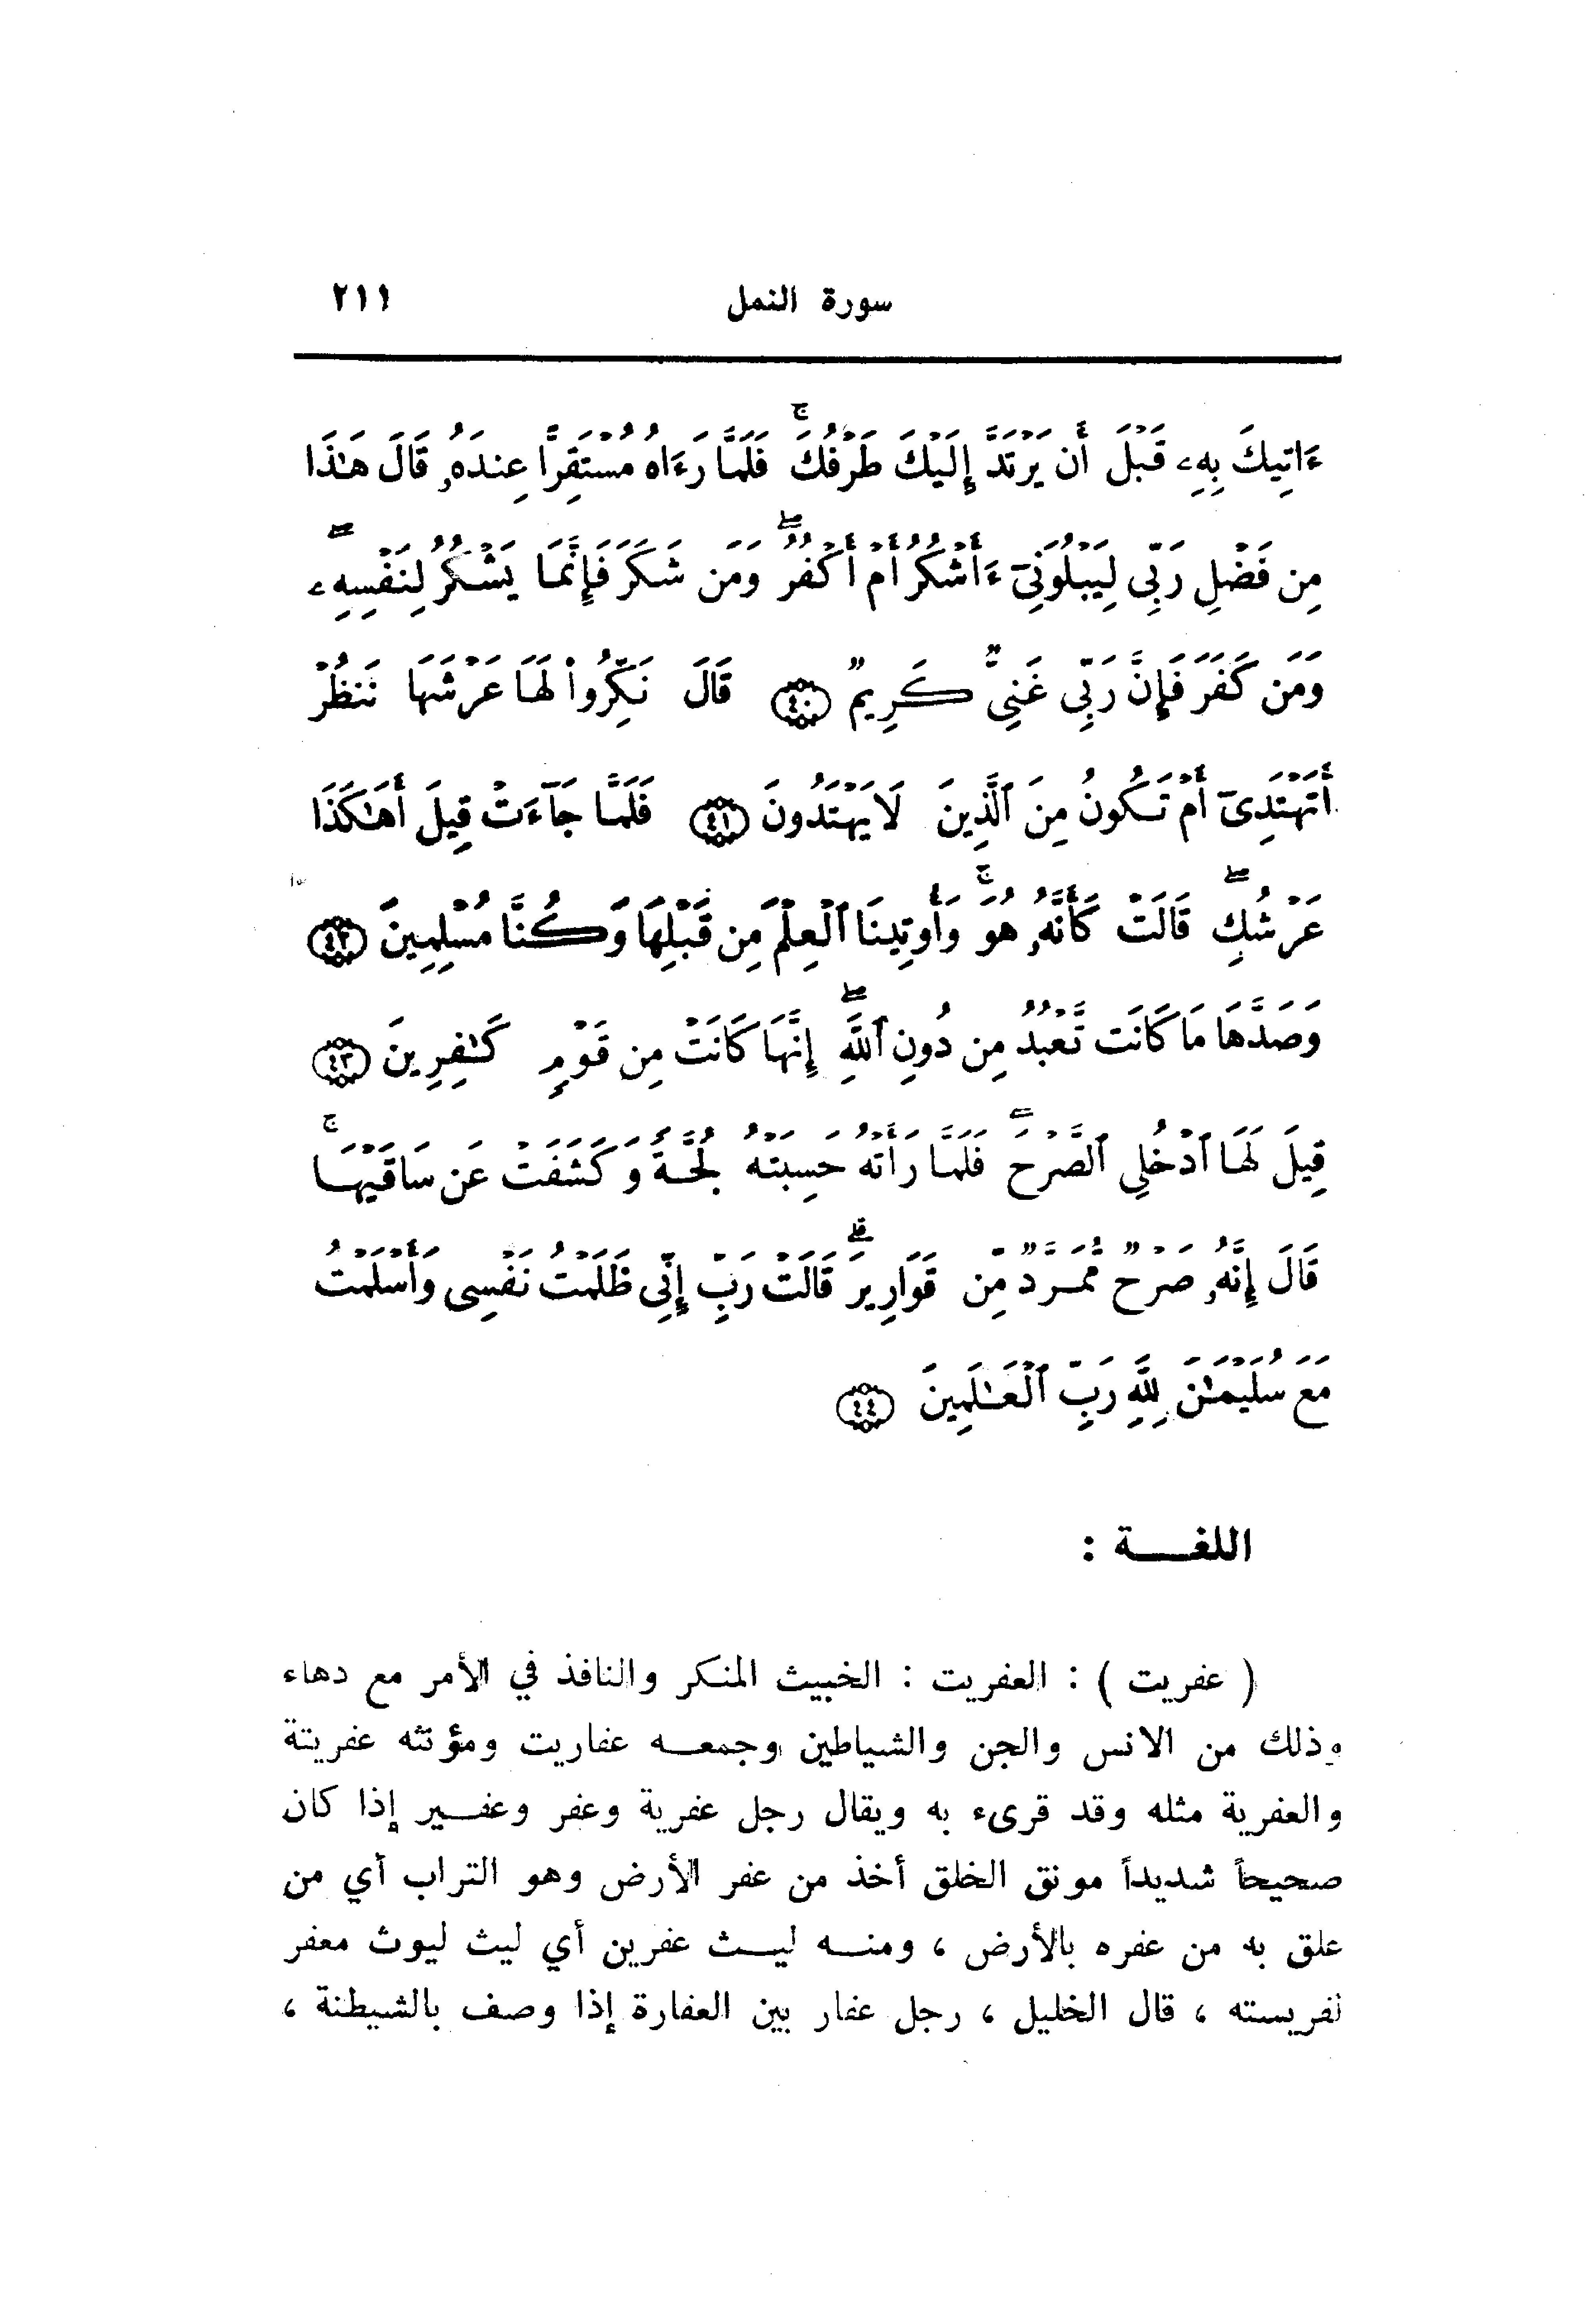 سورة النمل ٢١١
ءَاتِيكَ بِهِۦ قَبْلَ أَن يَرْتَدَّ إِلَيْكَ طَرْفُكَ ۚ فَلَمَّا رَءَاهُ مُسْتَقِرًّا عِندَهُۥ قَالَ هَـٰذَا
مِن فَضْلِ رَبِّى لِيَبْلُوَنِىٓ ءَأَشْكُرُ أَمْ أَكْفُرُ ۖ وَمَن شَكَرَ فَإِنَّمَا يَشْكُرُ لِنَفْسِهِۦ ۖ
وَمَن كَفَرَ فَإِنَّ رَبِّى غَنِىٌّ كَرِيمٌ ﴿٤٠﴾ قَالَ نَكِّرُوا۟ لَهَا عَرْشَهَا نَنظُرْ
أَتَهْتَدِىٓ أَمْ تَكُونُ مِنَ ٱلَّذِينَ لَا يَهْتَدُونَ ﴿٤١﴾ فَلَمَّا جَآءَتْ قِيلَ أَهَـٰكَذَا
عَرْشُكِ ۖ قَالَتْ كَأَنَّهُۥ هُوَ ۚ وَأُوتِينَا ٱلْعِلْمَ مِن قَبْلِهَا وَكُنَّا مُسْلِمِينَ ﴿٤٢﴾
وَصَدَّهَا مَا كَانَت تَّعْبُدُ مِن دُونِ ٱللَّهِ ۖ إِنَّهَا كَانَتْ مِن قَوْمٍ كَـٰفِرِينَ ﴿٤٣﴾
قِيلَ لَهَا ٱدْخُلِى ٱلصَّرْحَ ۖ فَلَمَّا رَأَتْهُ حَسِبَتْهُ لُجَّةً وَكَشَفَتْ عَن سَاقَيْهَا ۚ
قَالَ إِنَّهُۥ صَرْحٌ مُّمَرَّدٌ مِّن قَوَارِيرَ ۗ قَالَتْ رَبِّ إِنِّى ظَلَمْتُ نَفْسِى وَأَسْلَمْتُ
مَعَ سُلَيْمَـٰنَ لِلَّهِ رَبِّ ٱلْعَـٰلَمِينَ ﴿٤٤﴾
اللغـــة :
( عفريت ) : العفريت : الخبيث المنكر والنافذ في الأمر مع دهاء
وذلك من الانس والجن والشياطين وجمعـه عفاريت ومؤنثه عفريتة
والعفرية مثله وقد قرىء به ويقال رجل عفرية وعفر وعفـير إذا كان
صحيحاً شديداً موثق الخلق أخذ من عفر الأرض وهو التراب أي من
علق به من عفره بالأرض ، ومنـه ليـث عفرين أي ليث ليوث معفر
لفريسته ، قال الخليل ، رجل عفار بين العفارة إذا وصف بالشيطنة ،